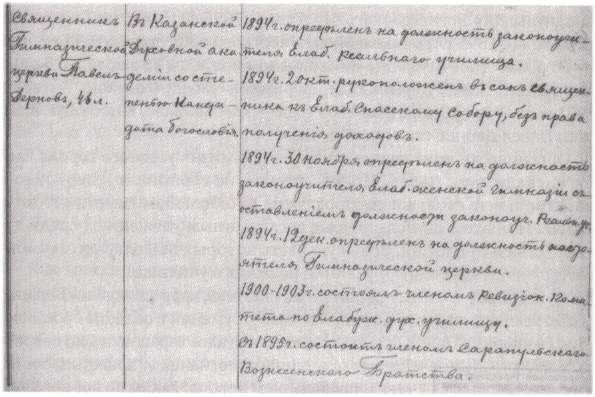 Священникъ
Гимназической
церкви Павелъ
Дерновъ, 46 л.
Въ Казанской
Духовной ака-
деміи со сте-
пенью Канди-
дата богословія.
1894 г. опредѣленъ на должность законоучи-
теля Елаб. реальнаго училища.
1894 г. 2 окт. рукоположенъ въ санъ священ-
ника къ Елаб. Спасскому собору, безъ права
полученія доходовъ.
1894 г. 30 ноября опредѣленъ на должность
законоучителя Елаб. женской гимназіи съ
оставленіемъ должности законоуч. Реальн. уч.
1894 г. 12 дек. опредѣленъ на должность насто-
ятеля Гимназической церкви.
1900-1903 г. состоялъ членомъ Ревизіон. Коми-
тета по Елабуж. дух. училищу.
съ 1895 г. состоитъ членомъ Сарапульскаго
Вознесенскаго Братства.